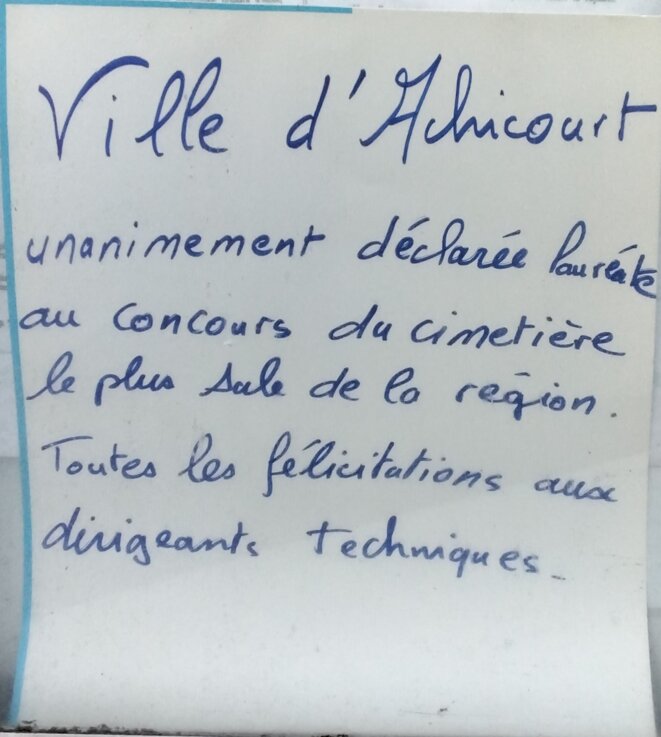 Ville d'Achicourt
unanimement déclarée lauréate
au concours du cimetière
le plus sale de la région.
Toutes les félicitations aux
dirigeants techniques_